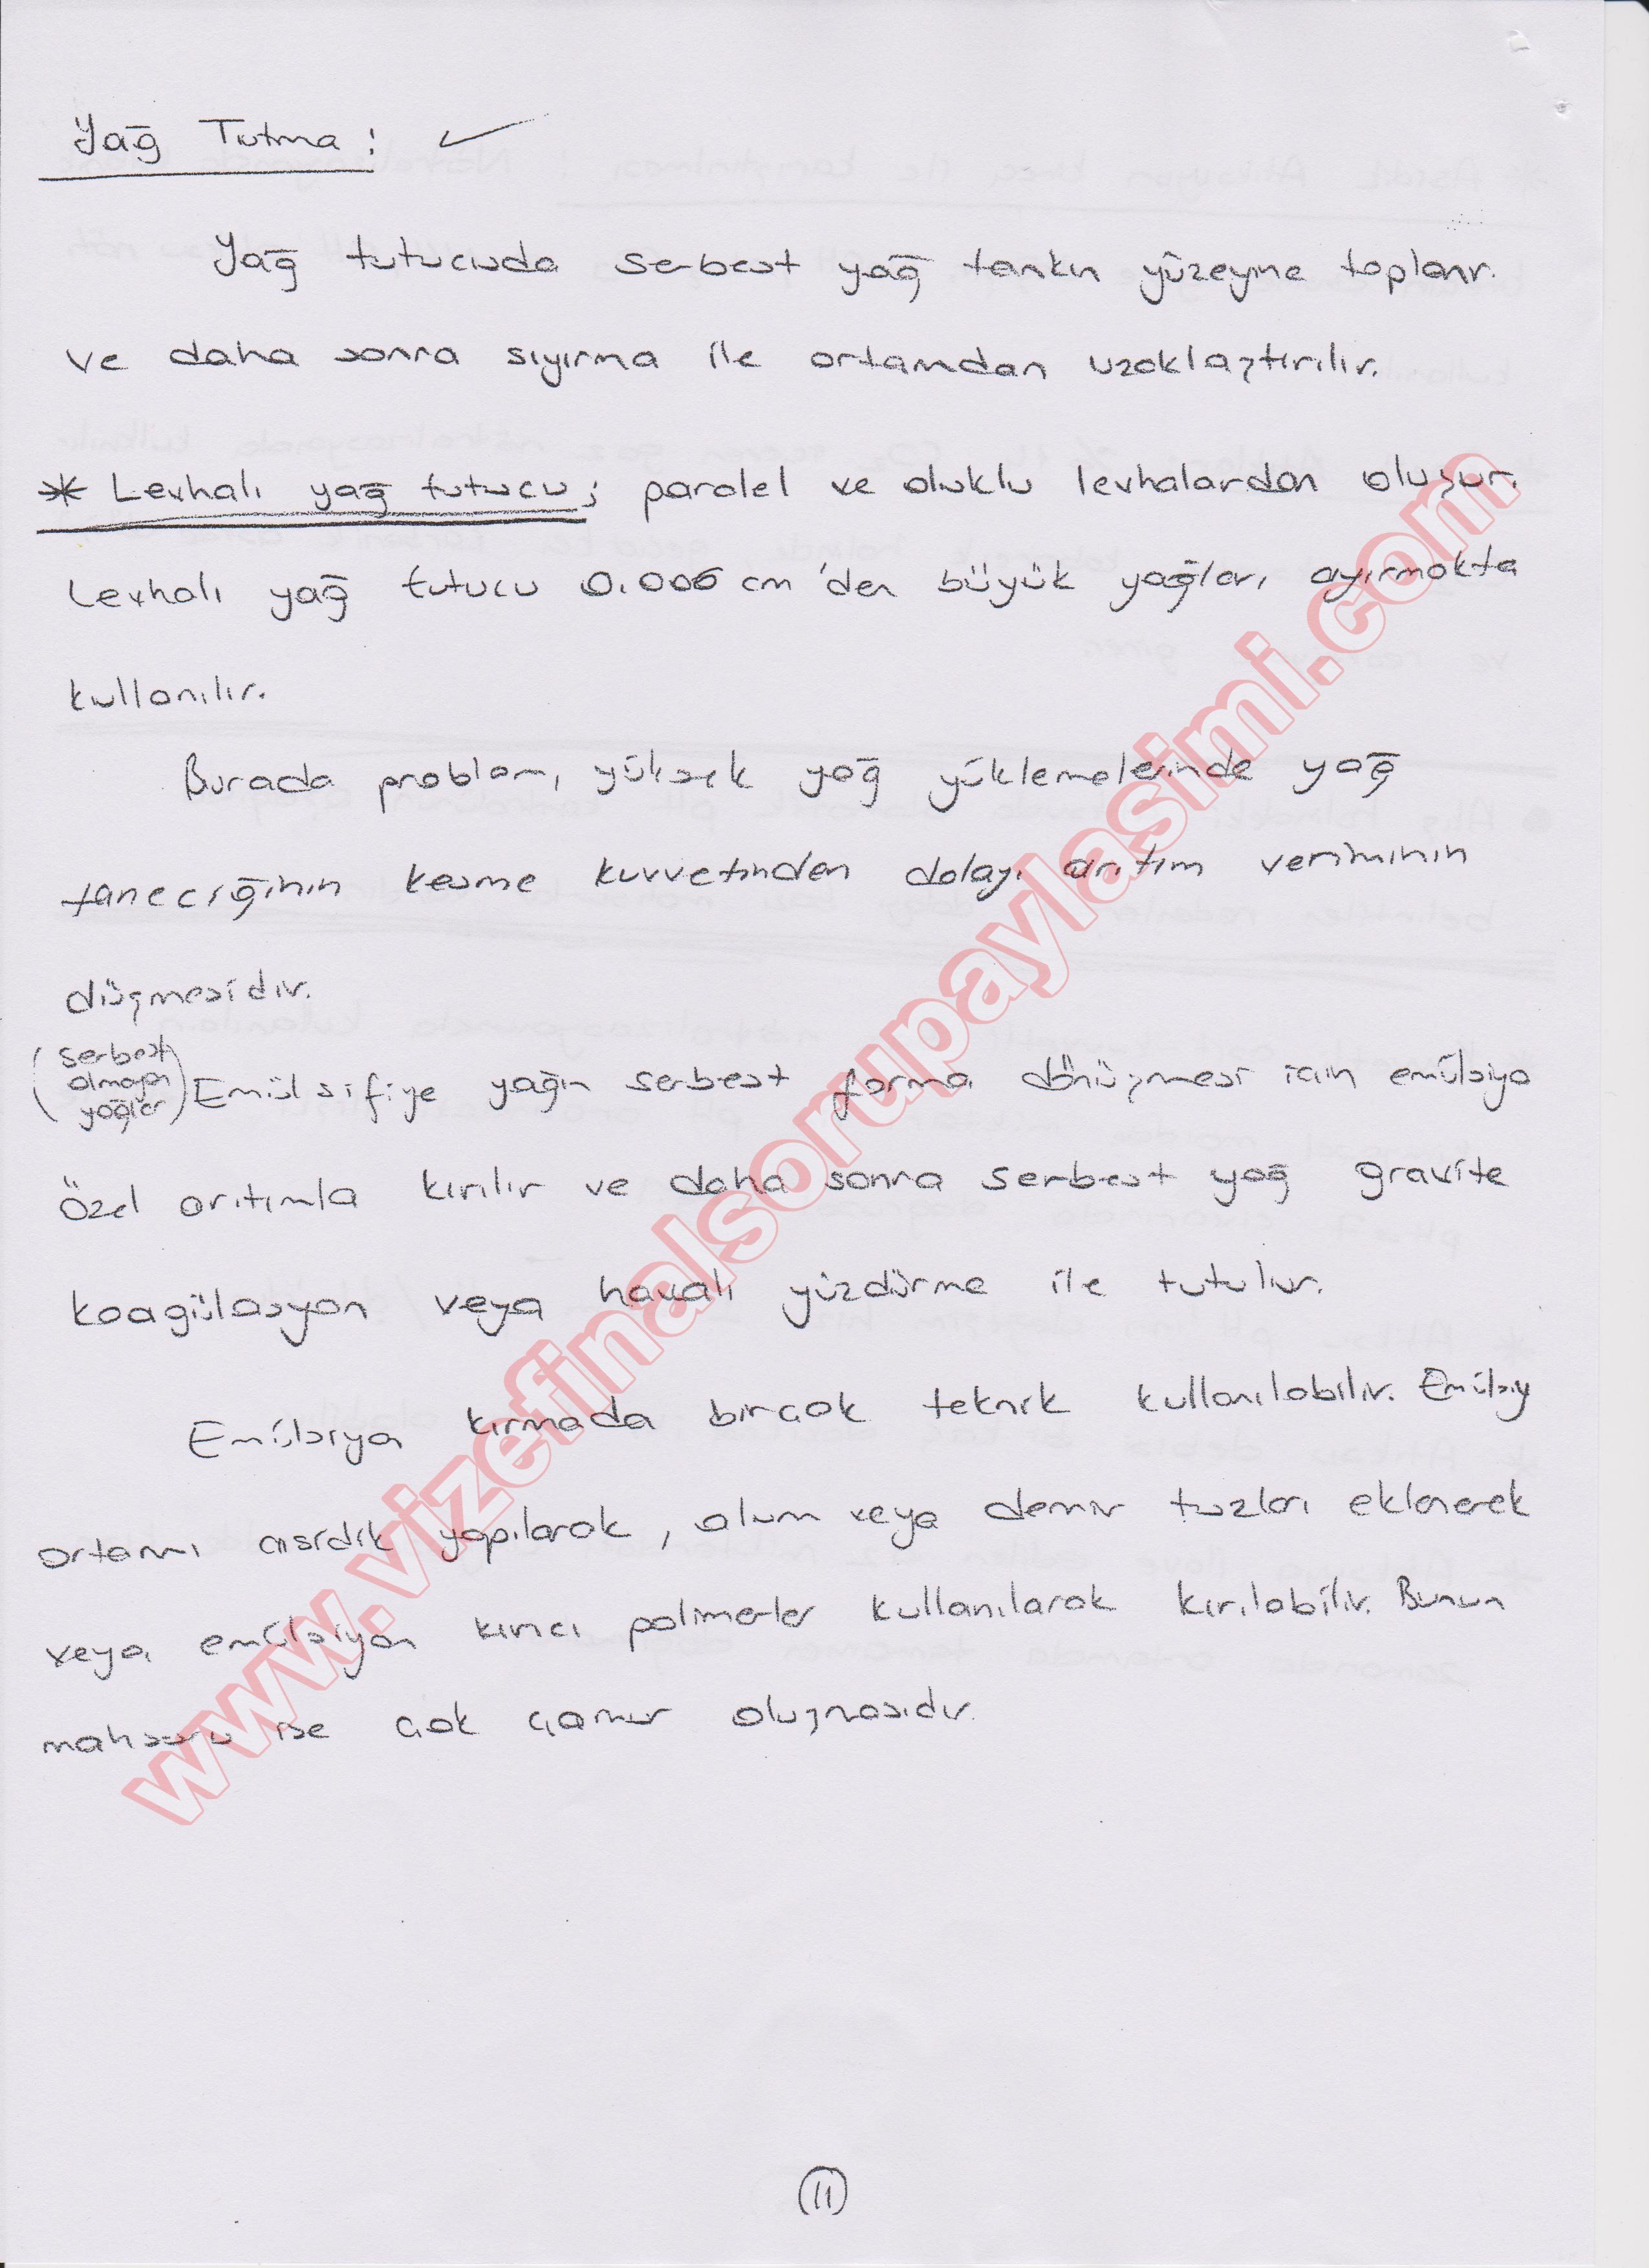 Yağ Tutma: ✓
Yağ tutucuda serbest yağ tankın yüzeyine toplanır.
ve daha sonra sıyırma ile ortamdan uzaklaştırılır.
* Levhalı yağ tutucu; paralel ve oluklu levhalardan oluşur.
Levhalı yağ tutucu 0.006 cm'den büyük yağları ayırmakta
kullanılır.
Burada problem, yüksek yağ yüklemelerinde yağ
taneciğinin kesme kuvvetinden dolayı arıtım veriminin
düşmesidir.
(serbest olmayan yağlar) Emülsifiye yağın serbest forma dönüşmesi için emülsiyo
özel arıtımla kırılır ve daha sonra serbest yağ gravite
koagülasyon veya havalı yüzdürme ile tutulur.
Emülsiyon kırmada birçok teknik kullanılabilir. Emülsiy
ortamı asidik yapılarak, alum veya demir tuzları eklenerek
veya emülsiyon kırıcı polimerler kullanılarak kırılabilir. Bunun
mahsuru ise çok çamur oluşmasıdır.
11
www.vizefinalsorupaylasimi.com